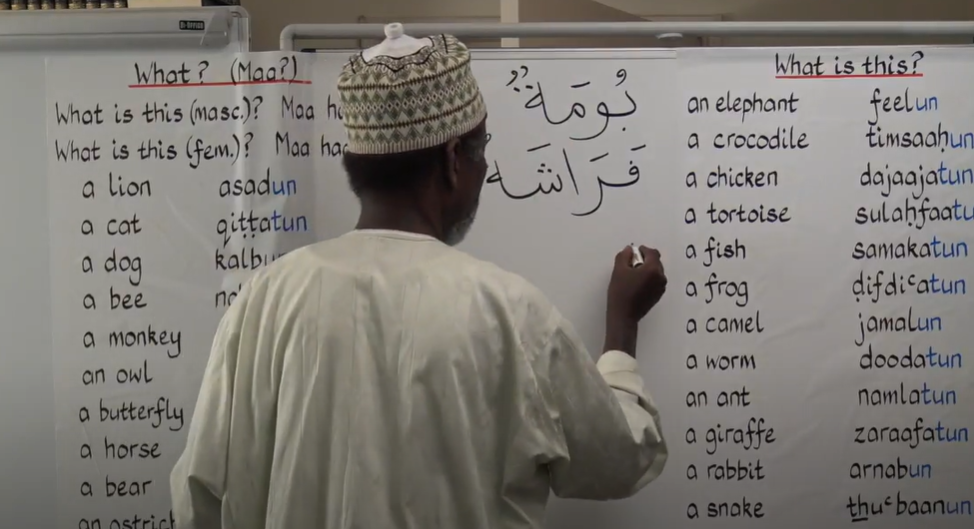 What? (Maa?)
What is this (masc.)? Maa
What is this (fem.)? Maa
a lion asadun
a cat qiṭṭatun
a dog
a bee
a monkey
an owl
a butterfly
a horse
a bear
an
بُومَةٌ
فَرَاشَه
What is this?
an elephant feelun
a crocodile timsaaḥun
a chicken dajaajatun
a tortoise
a fish samakatun
a frog ḍifdiᶜatun
a camel jamalun
a worm doodatun
an ant namlatun
a giraffe zaraafatun
a rabbit arnabun
a snake thuᶜbaanun